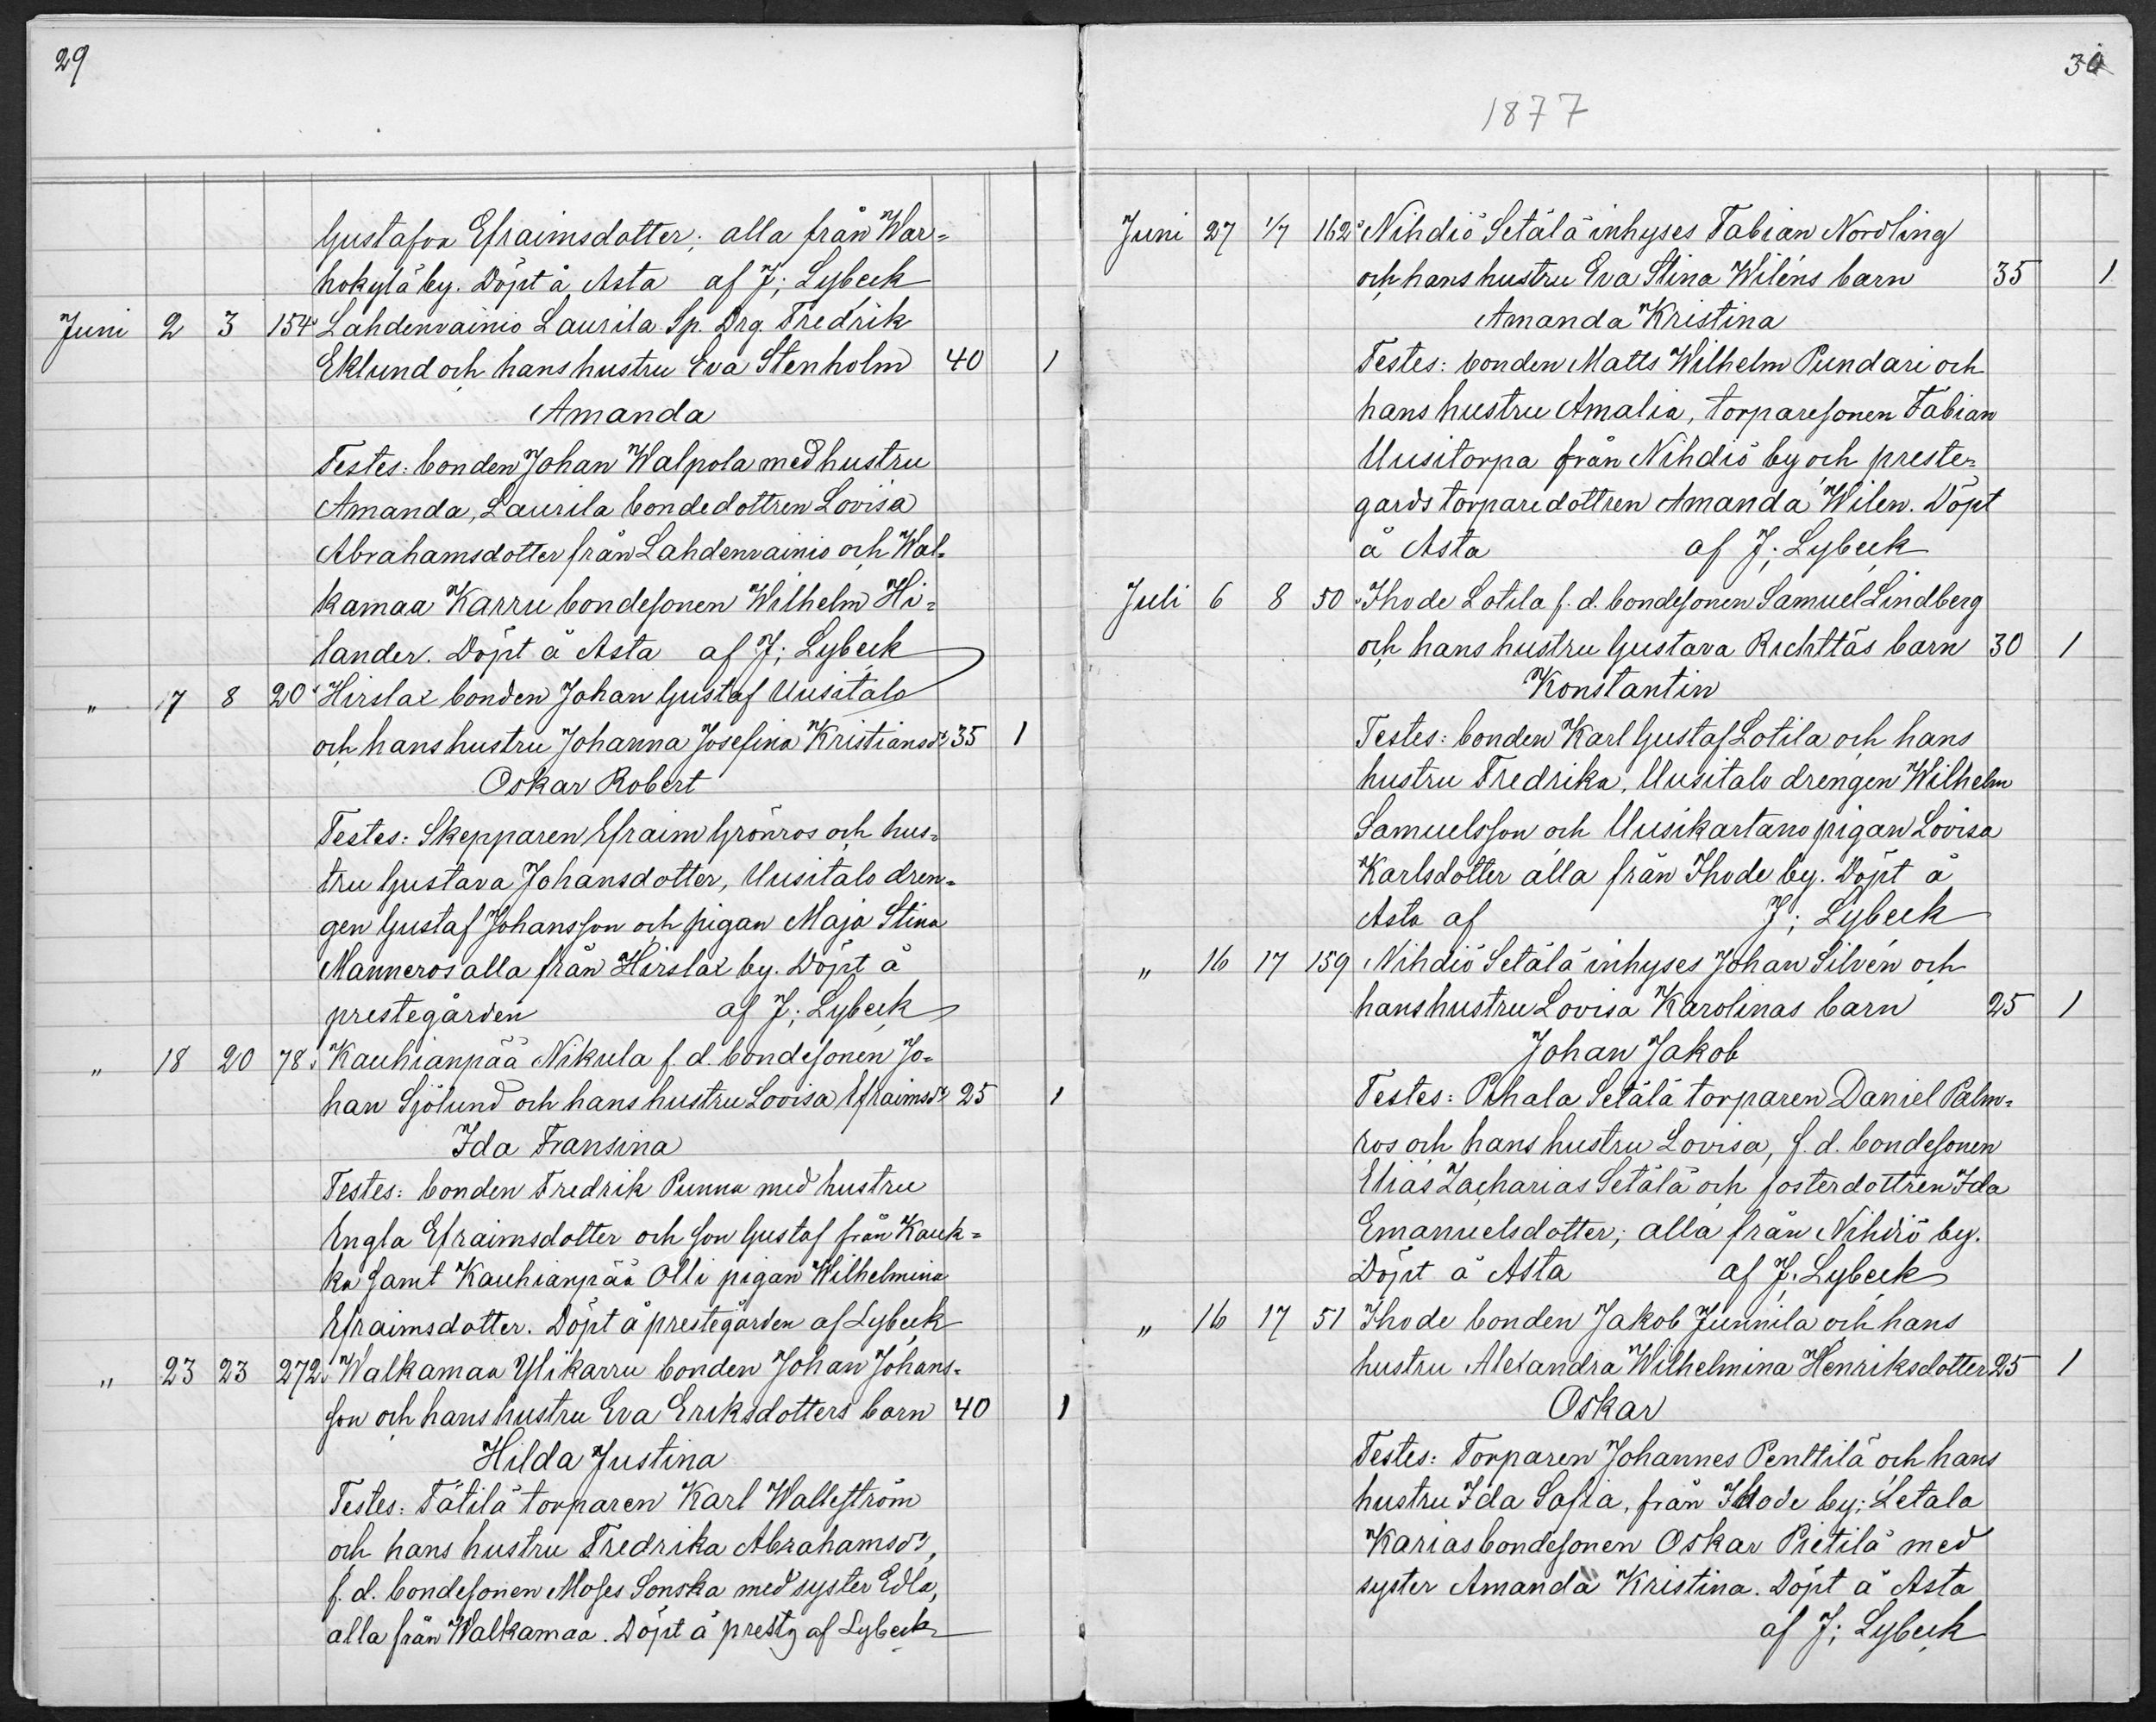 29
Gustafva Efraimsdotter; alla från War=
hokylä by. Döpt å Asta af J; Lybeck
Juni 2 3 154 Lahdenvainio Laurila Sp. Drg. Fredrik
Eklund och hans hustru Eva Stenholm 40 1
Amanda
Testes: bonden Johan Walpola med hustru
Amanda, Laurila bondedottren Lovisa
Abrahamsdotter från Lahdenvainio och Wal=
kamaa Karru bondesonen Wilhelm Hi=
lander. Döpt å Asta af J; Lybeck
" 7 8 20 Hirslax bonden Johan Gustaf Uusitalo
och hans hustru Johanna Josefina Kristiansdr 35 1
Oskar Robert
Testes: Skepparen Efraim Grönros och hus=
tru Gustava Johansdotter, Uusitalo dren=
gen Gustaf Johansson och pigan Maja Stina
Manneros alla från Hirslax by. Döpt å
prestegården af J; Lybeck
" 18 20 78. Kauhianpää Nikula f. d. bondesonen Jo=
han Sjölund och hans hustru Lovisa Efraimsdr 25 1
Ida Fransina
Testes: bonden Fredrik Punna med hustru
Engla Efraimsdotter och son Gustaf från Kauk=
ka samt Kauhianpää Olli pigan Wilhelmina
Efraimsdotter. Döpt å prestegården af Lybeck
" 23 23 272. Walkamaa Ylikarru bonden Johan Johans=
son och hans hustru Eva Eriksdotters barn 40 1
Hilda Justina
Testes: Tätilä torparen Karl Walleström
och hans hustru Fredrika Abrahamsdr,
f. d. bondesonen Moses Sonska med syster Edla,
alla från Walkamaa. Döpt å prestg af Lybeck
30
1877
Juni 27 1/7 162 Nihdiö Setälä inhyses Fabian Nordling
och hans hustru Eva Stina Wiléns barn 35 1
Amanda Kristina
Testes: bonden Matts Wilhelm Pundari och
hans hustru Amalia, torparesonen Fabian
Uusitorpa från Nihdiö by och preste=
gards torparedottren Amanda Wilen. Döpt
å Asta af J; Lybeck
Juli 6 8 50 Ihode Lotila f. d. bondesonen Samuel Lindberg
och hans hustru Gustava Richttäs barn 30 1
Konstantin
Testes: bonden Karl Gustaf Lotila och hans
hustru Fredrika, Uusitalo drengen Wilhelm
Samuelsson och Uusikartano pigan Lovisa
Karlsdotter alla från Ihode by. Döpt å
Asta af J; Lybeck
" 16 17 159 Nihdiö Setälä inhyses Johan Silvén och
hans hustru Lovisa Karolinas barn 25 1
Johan Jakob
Testes: Pihala Setälä torparen Daniel Palm=
ros och hans hustru Lovisa, f. d. bondesonen
Elias Zacharias Setälä och fosterdottren Ida
Emanuelsdotter; alla från Nihdiö by.
Döpt å Asta af J. Lybeck
" 16 17 51 Ihode bonden Jakob Junnila och hans
hustru Alexandra Wilhelmina Henriksdotter 25 1
Oskar
Testes: Torparen Johannes Penttilä och hans
hustru Ida Sofia, från Ihode by; Letala
Karias bondesonen Oskar Pietilä med
syster Amanda Kristina. Döpt å Asta
af J; Lybeck